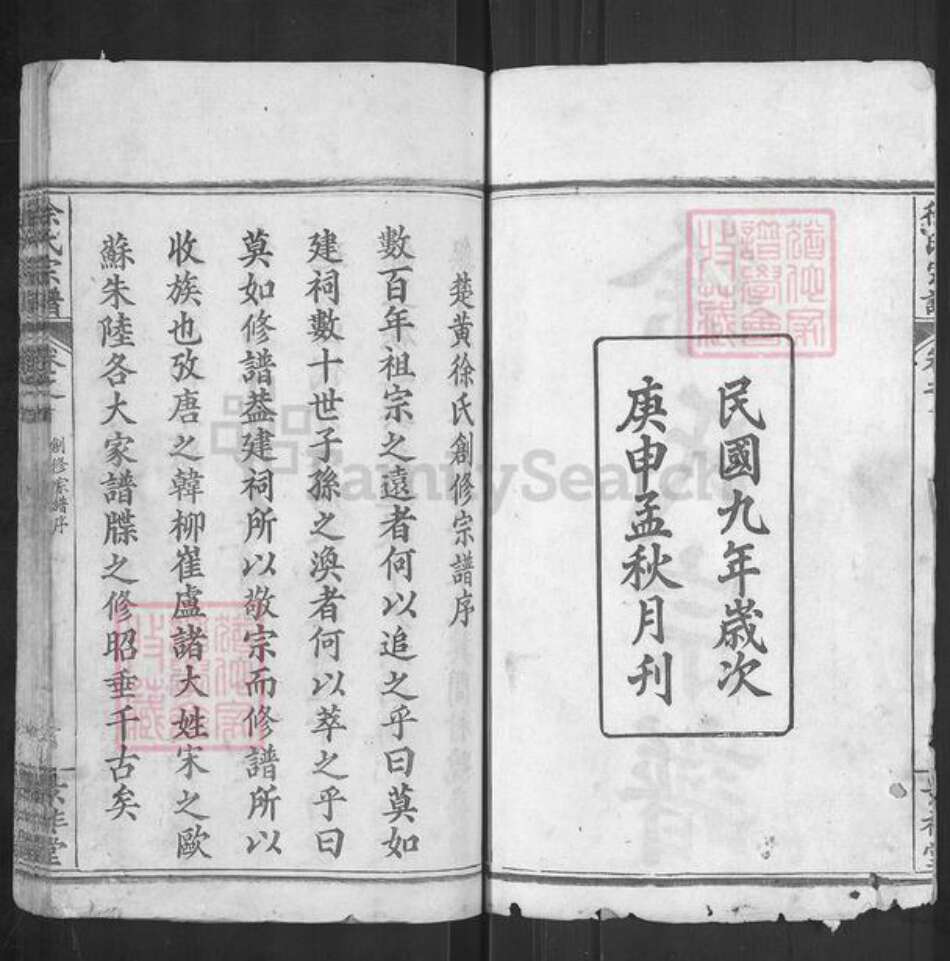 民國九年歲次
庚申孟秋月刊
楚黃徐氏創修宗譜序
數百年祖宗之遠者何以追之乎曰莫如
建祠數十世子孫之渙者何以萃之乎曰
莫如修譜葢建祠所以敬宗而修譜所以
收族也攷唐之韓柳崔盧諸大姓宋之歐
蘇朱陸各大家譜牒之修昭垂千古矣
徐氏宗譜
創修宗譜序
FamilySearch